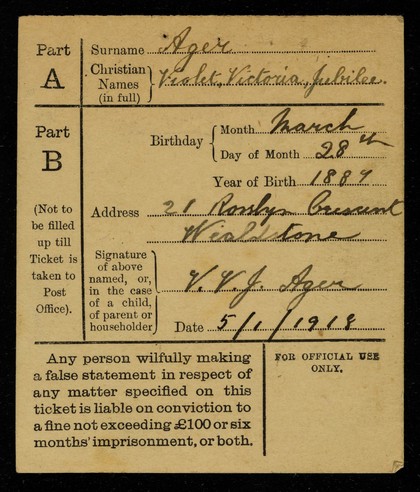 Part A
Surname Ager
Christian Names (in full) Violet, Victoria, Jubilee.
Part B
(Not to be filled up till Ticket is taken to Post Office).
Birthday
Month March
Day of Month 28th
Year of Birth 1887
Address 21 Crescent
Wealdstone
Signature of above named, or, in the case of a child, of parent or householder
V. V. J. Ager
Date 5/1/1918
Any person wilfully making
a false statement in respect of
any matter specified on this
ticket is liable on conviction to
a fine not exceeding £100 or six
months' imprisonment, or both.
FOR OFFICIAL USE
ONLY.